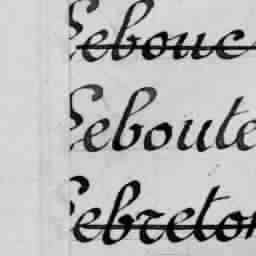 Lebouc
Leboute
Lebreton